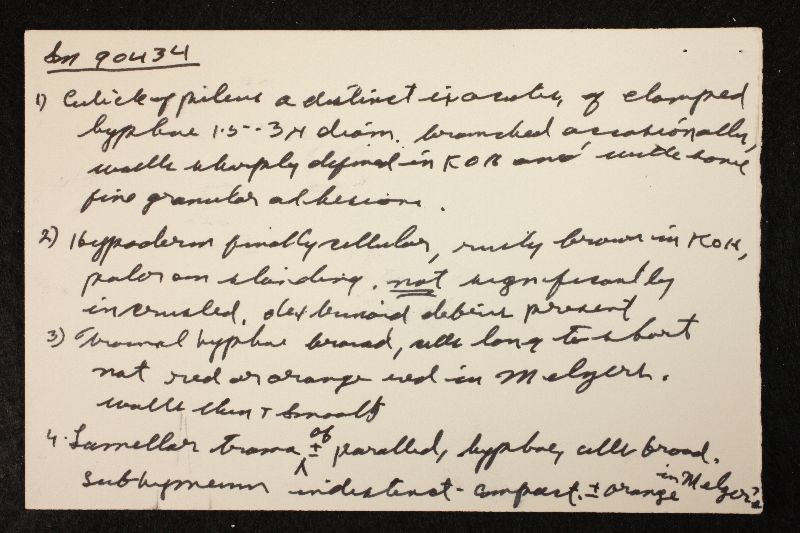 Sm 90434
1) Cuticle of pileus a distinct ixocutis, of clamped
hyphae 1.5-3 µ diam. branched occasionally,
walls sharply defined in KOH and with some
fine granular adhesions.
2) Hypoderm finally cellular, rusty brown in KOH,
paler on standing, not significantly
incrusted, dextrinoid debris present
3) Tramal hyphae broad, cells long to short
not red or orange red in Melzers.
walls thin + smooth
4. Lamellar trama of ± parallel, hyphae, cells broad.
Subhymenium indistinct - compact. ± orange in Melzer's